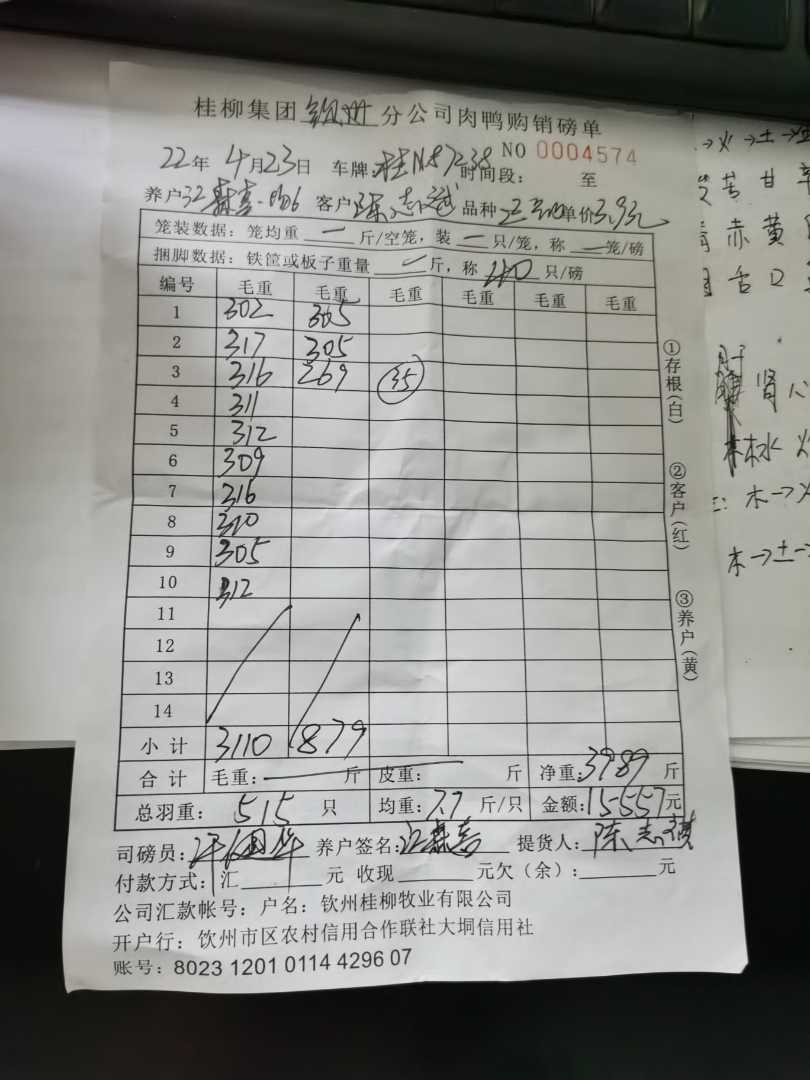 桂柳集团 钦州 分公司肉鸭购销磅单
NO 0004574
22年 4月23日 车牌:桂N 时间段: 至
养户 森喜 客户 陈志 品种 单价3.9元
笼装数据: 笼均重 一 斤/空笼, 装 一 只/笼, 称 一 笼/磅
捆脚数据: 铁筐或板子重量 一 斤, 称 40 只/磅
编号 毛重 毛重 毛重 毛重 毛重 毛重
1 302 305
2 317 305
3 316 269 35
4 311
5 312
6 309
7 316
8 310
9 305
10 312
11
12
13
14
小计 3110 879
合计 毛重: 斤 皮重: 斤 净重: 3989 斤
总羽重: 515 只 均重: 7.7 斤/只 金额: 15557元
司磅员: 养户签名: 江森喜 提货人: 陈志
付款方式: 汇 元 收现 元欠(余): 元
公司汇款帐号: 户名: 钦州桂柳牧业有限公司
开户行: 饮州市区农村信用合作联社大垌信用社
账号: 8023 1201 0114 4296 07
①存根(白)
②客户(红)
③养户(黄)
火→土→
苦甘
赤黄
舌口
肝
肾
水
木→火
木→土→